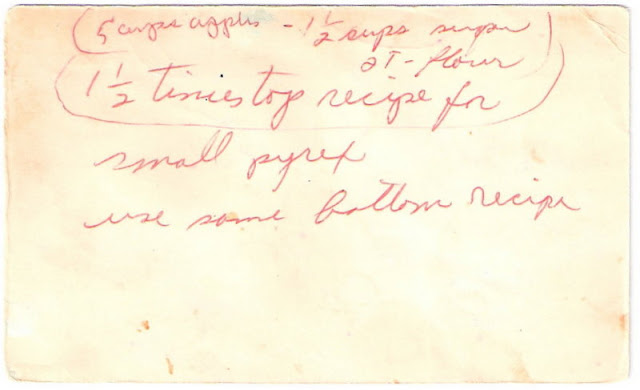 (5 cups apples - 1 1/2 cups sugar
2T - flour)
(1 1/2 times top recipe for
small pyrex
use same bottom recipe